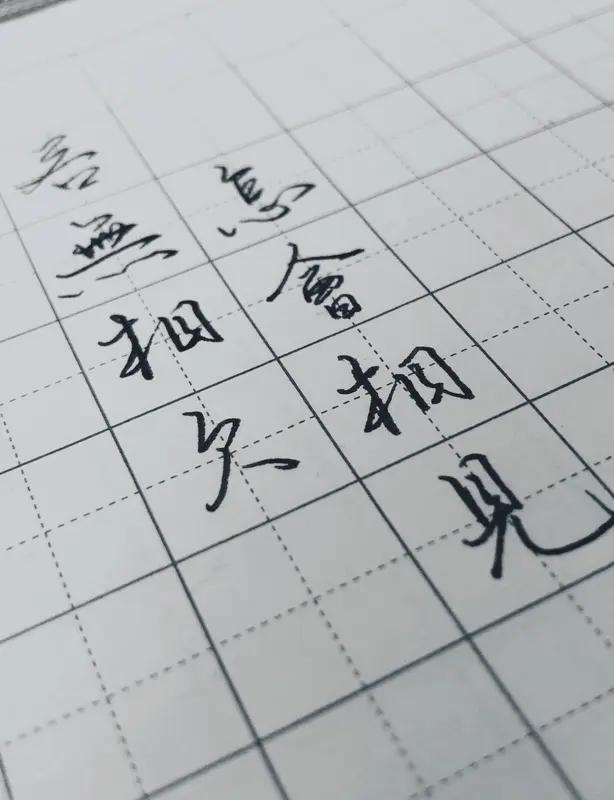 若無相欠
怎會相見